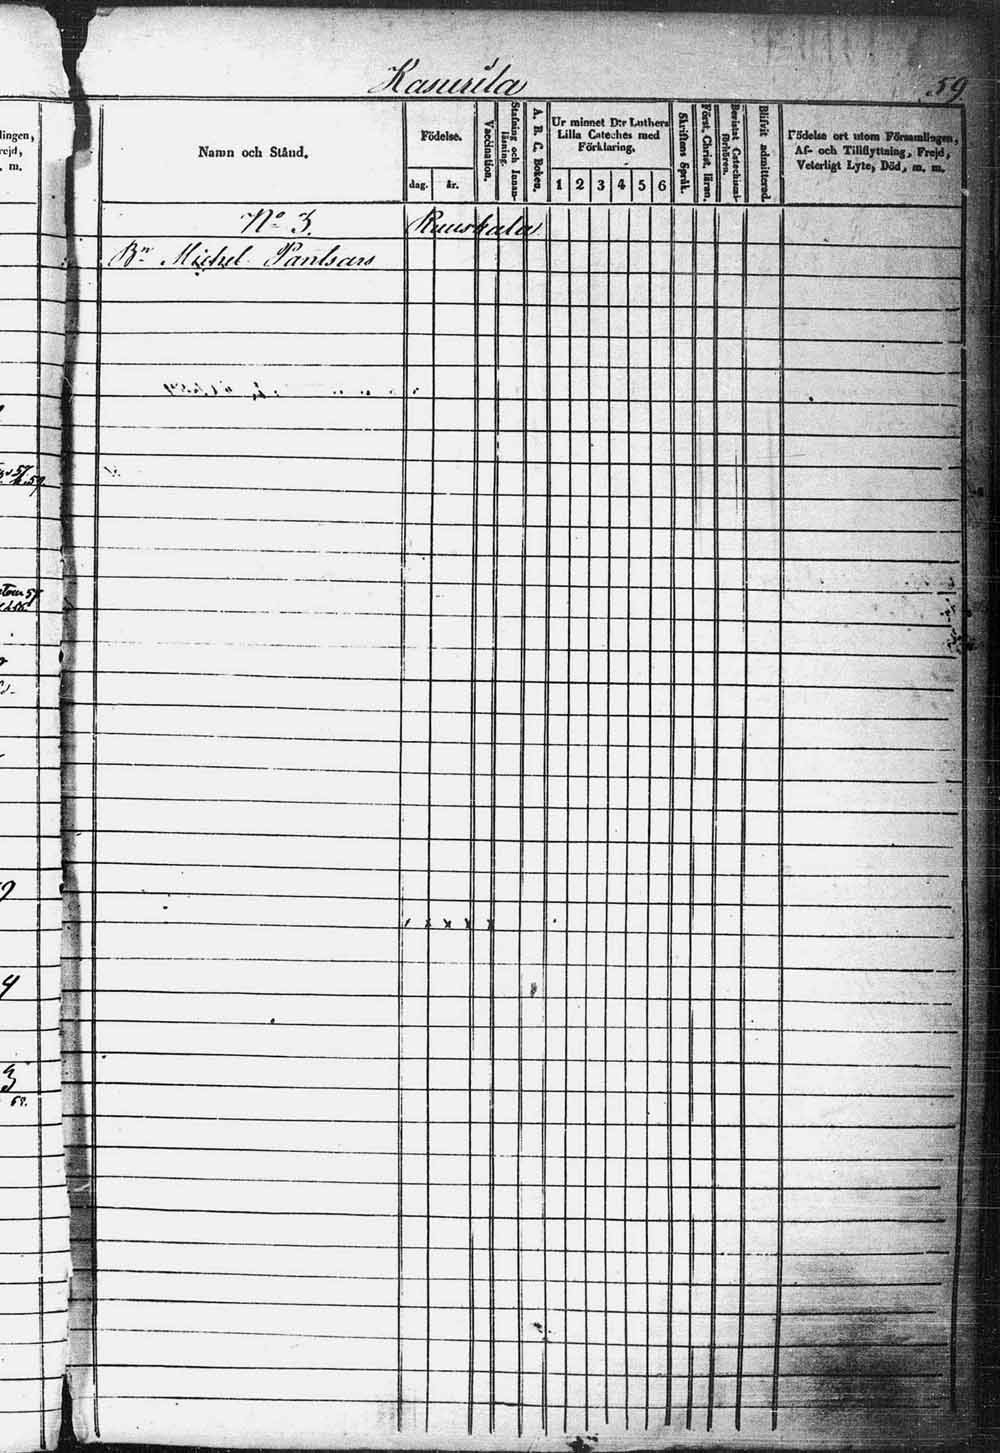 Kasurila
59
Namn och Stånd.
Födelse.
dag.
år.
Vaccination.
Stafning och Innan-
läsning.
A. B. C. Boken.
Ur minnet D:r Luthers
Lilla Cateches med
Förklaring.
1 2 3 4 5 6
Skriftens Språk.
Först. Christ. läran.
Bevistat Catechismi-
förhören.
Blifvit admitterad.
Födelse ort utom Församlingen,
Af- och Tillflyttning, Frejd,
Veterligt Lyte, Död, m. m.
No 3. Ruuskala
Bn Michel Pantsars
lingen,
rejd,
. m.